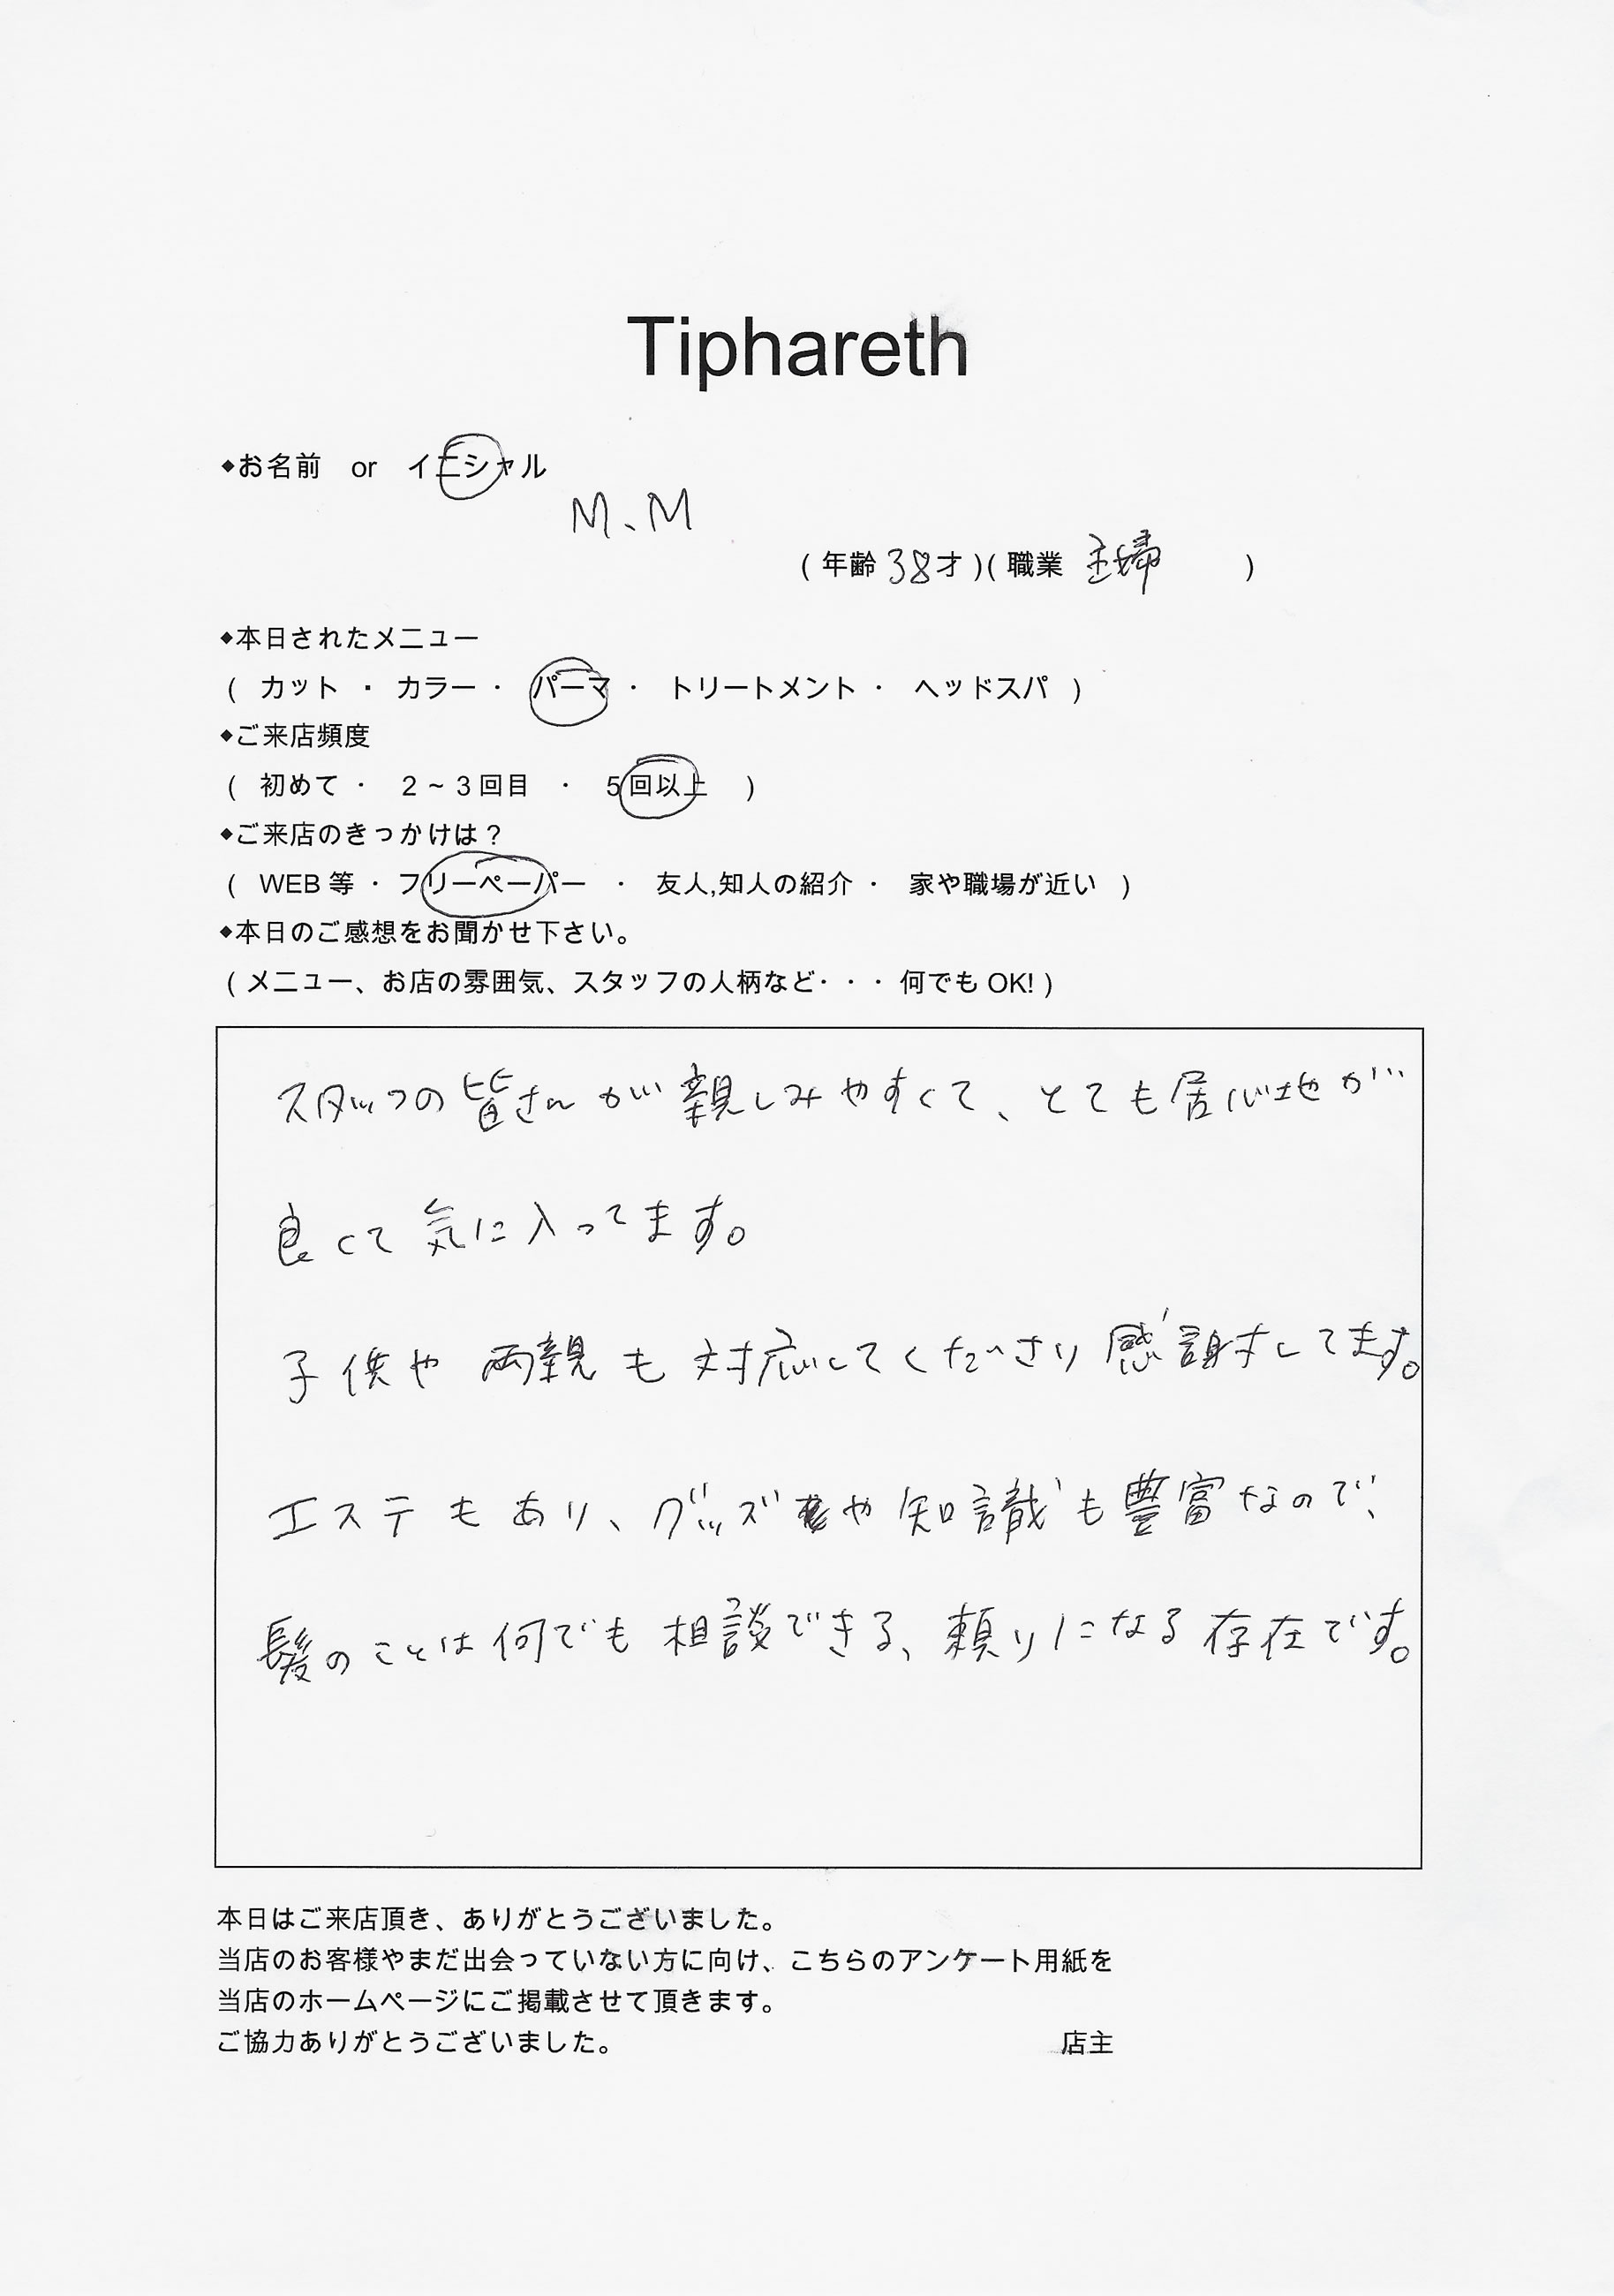 Tiphareth
◆お名前 or イニシャル
M、M
( 年齢 38才 )( 職業 主婦 )
◆本日されたメニュー
( カット ・ カラー ・ パーマ ・ トリートメント ・ ヘッドスパ )
◆ご来店頻度
( 初めて ・ 2~3回目 ・ 5回以上 )
◆ご来店のきっかけは?
( WEB等 ・ フリーペーパー ・ 友人,知人の紹介 ・ 家や職場が近い )
◆本日のご感想をお聞かせ下さい。
( メニュー、お店の雰囲気、スタッフの人柄など・・・何でもOK! )
スタッフの皆さんが親しみやすくて、とても居心地が
良くて気に入ってます。
子供や両親も対応してくださり感謝してます。
エステもあり、グッズや知識も豊富なので、
髪のことは何でも相談できる、頼りになる存在です。
本日はご来店頂き、ありがとうございました。
当店のお客様やまだ出会っていない方に向け、こちらのアンケート用紙を
当店のホームページにご掲載させて頂きます。
ご協力ありがとうございました。 店主